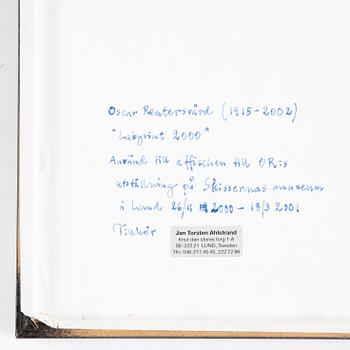 Oscar Reutersvärd (1915-2002)
"Labyrint 2000"
Använd till affischen till OR:s
utställning på Skissernas museum
i Lund 26/11 2000 - 18/3 2001
Tillhör
Jan Torsten Ahlstrand
Knut den stores torg 1 A
SE-222 21 LUND, Sweden
Tfn: 046-211 45 45, 222 72 86